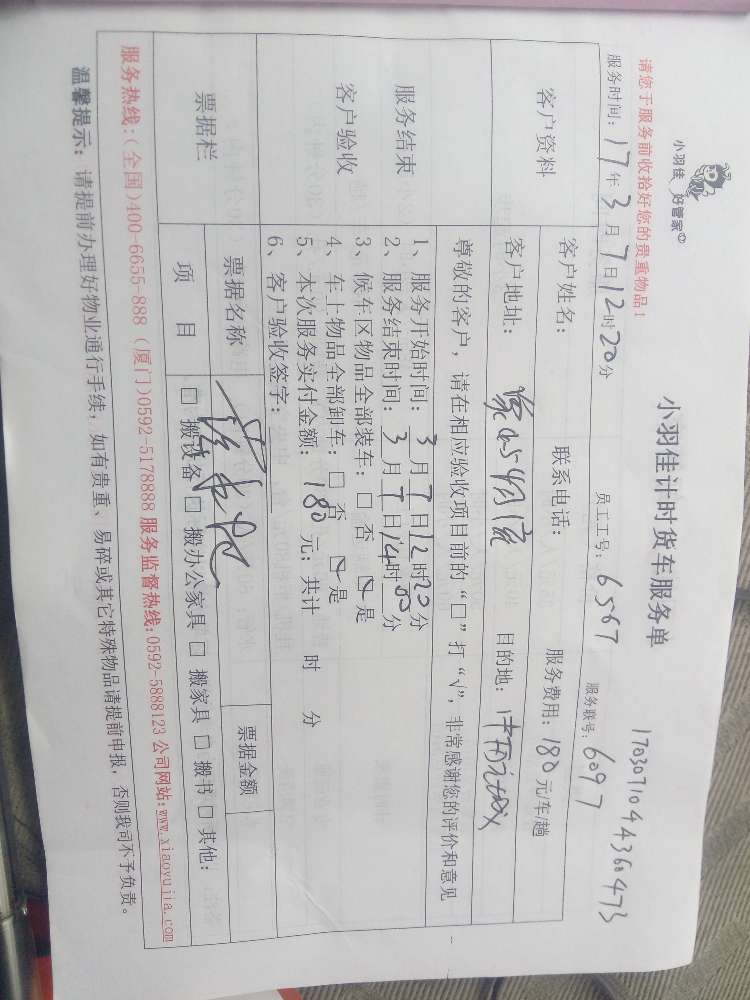 小羽佳 好管家
小羽佳计时货车服务单
1703071044360473
请您于服务前收拾好您的贵重物品!
员工工号: 6567 服务联号: 6097
服务时间: 17年3月7日12时20分
客户资料
客户姓名: 联系电话: 服务费用: 180元/车/趟
客户地址: 目的地:
尊敬的客户, 请在相应验收项目前的“□”打“√”, 非常感谢您的评价和意见
服务结束
客户验收
1、服务开始时间: 3月7日12时20分
2、服务结束时间: 3月7日14时00分
3、候车区物品全部装车: □ 否 ☑ 是
4、车上物品全部卸车: □ 否 ☑ 是
5、本次服务实付金额: 180元; 共计 时 分
6、客户验收签字:
票据栏
票据名称 票据金额
项 目 □ 搬设备 □ 搬办公家具 □ 搬家具 □ 搬书 □ 其他:
服务热线:(全国)400-6655-888 (厦门)0592-5178888 服务监督热线:0592-5888123 公司网站:www.xiaoyujia.com
温馨提示: 请提前办理好物业通行手续, 如有贵重、易碎或其它特殊物品请提前申报, 否则我司不予负责。